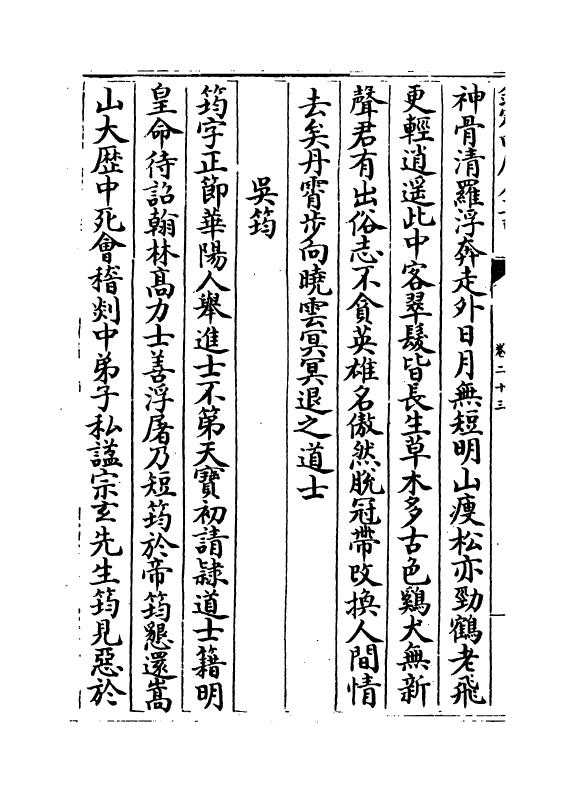 卷二十三
神骨清羅浮奔走外日月無短明山瘦松亦勁鶴老飛
更輕逍遥此中客翠髮皆長生草木多古色鷄犬無新
聲君有出俗志不貪英雄名傲然脫冠帶改換人間情
去矣丹霄步向曉雲冥冥退之道士
吳筠
筠字正節華陽人舉進士不第天寳初請隸道士籍明
皇命待詔翰林髙力士善浮屠乃短筠於帝筠懇還嵩
山大厯中死會稽剡中弟子私諡宗𤣥先生筠見惡於